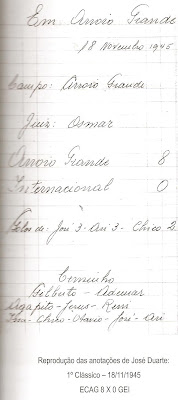 Em Arroio Grande
18 Novembro 1945
Campo: Arroio Grande
Juiz: Osmar
Arroio Grande 8
Internacional 0
de José 3 - Ari 3 - Chico 2
Gilberto - Ademar
Agapito - - Reni
- Chico - Otavio - José - Ari
Reprodução das anotações de José Duarte:
1º Clássico – 18/11/1945
ECAG 8 X 0 GEI